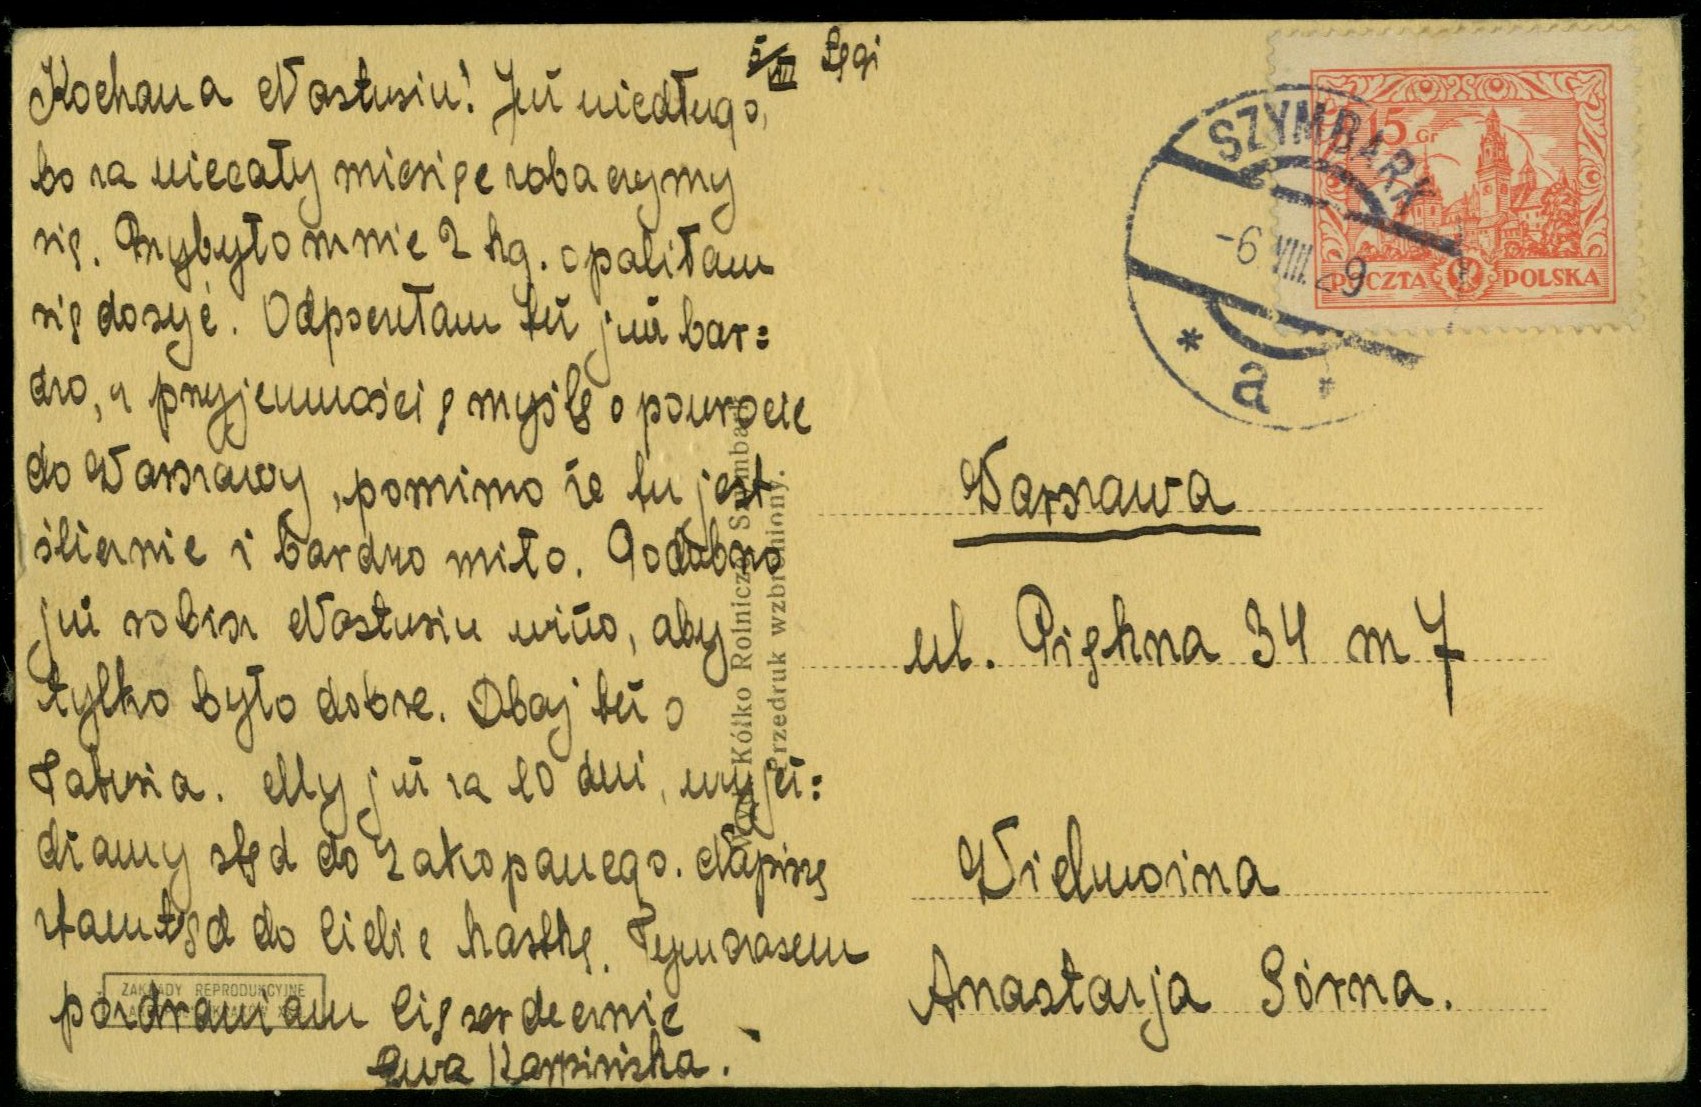 5/VIII Łęgi
Kochana Nastusiu! Już niedługo,
bo za niecały miesiąc zobaczymy
się. Przybyło mnie 2 kg. opaliłam
się dosyć. Odpoczęłam też już bar=
dzo, z przyjemnością myślę o powrocie
do Warszawy, pomimo że tu jest
ślicznie i bardzo miło. Podobno
już robisz Nastusiu wino, aby
tylko było dobre. Dbaj też o
Tatusia. My już za 10 dni, wyjeż=
dżamy stąd do Zakopanego. Napiszę
stamtąd do Ciebie kartkę. Tymczasem
pozdrawiam Cię serdecznie
Ewa Karpińska.
Wyd. Kółko Rolnicze Szymbark
Przedruk wzbroniony.
ZAKŁADY REPRODUKCYJNE
15 Gr
POCZTA POLSKA
SZYMBARK
-6 VIII. 29
* a *
Warszawa
ul. Piękna 34 m 7
Wielmożna
Anastazja Górna.